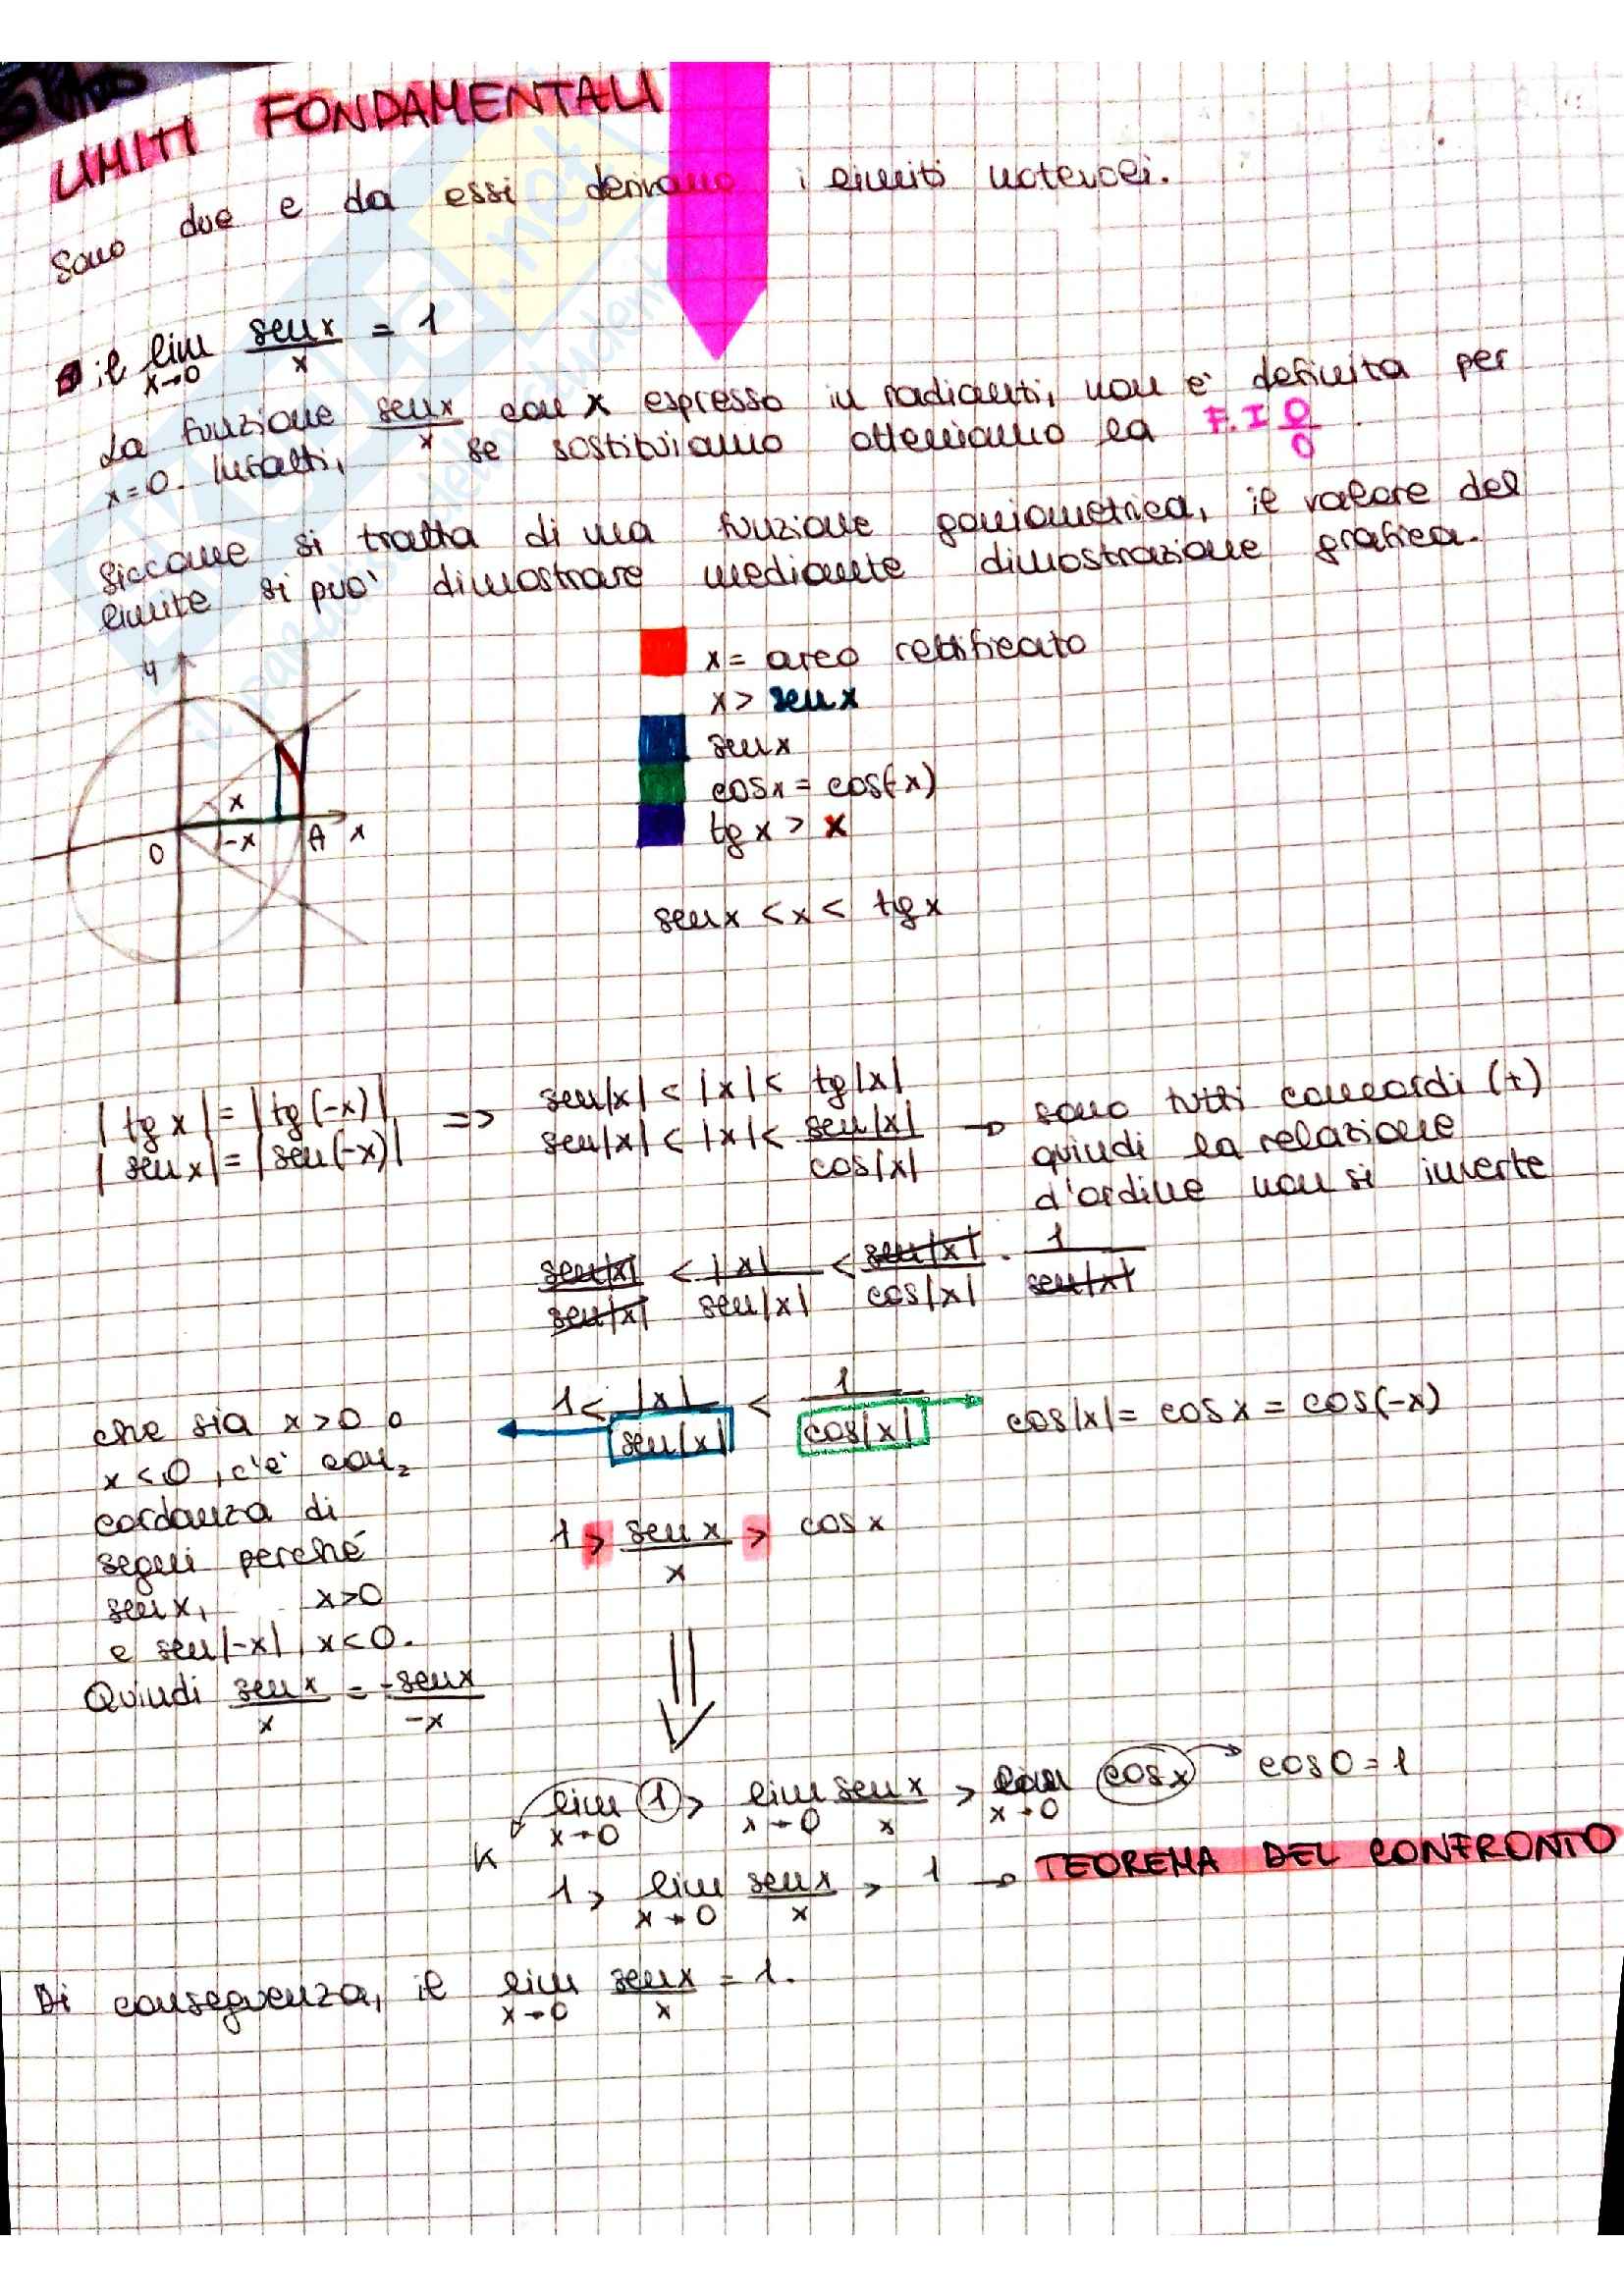 LIMITI FONDAMENTALI
Sono due e da essi derivano i limiti notevoli.
il lim x→0 senx/x = 1
La funzione senx/x con x espresso in radianti, non e' definita per
x=0. Infatti, se sostituiamo otteniamo la F.I 0/0.
Siccome si tratta di una funzione goniometrica, il valore del
limite si puo' dimostrare mediante dimostrazione grafica.
y
x
-x
O
A
x
x = arco rettificato
x > senx
senx
cosx = cos(-x)
tgx > x
senx < x < tgx
|tgx| = |tg(-x)|
|senx| = |sen(-x)|
=>
sen|x| < |x| < tg|x|
sen|x| < |x| < sen|x|/cos|x|
→ sono tutti concordi (+)
quindi la relazione
d'ordine non si inverte
sen|x|/sen|x| < |x|/sen|x| < sen|x|/cos|x| · 1/sen|x|
1 < |x|/sen|x| < 1/cos|x|
cos|x| = cosx = cos(-x)
che sia x>0 o
x<0, c'e' con
cordanza di
segni perché
senx, x>0
e sen|-x|, x<0.
Quindi senx/x = -senx/-x
1 > senx/x > cosx
lim x→0 1 > lim x→0 senx/x > lim x→0 cosx → cos0=1
K
1 > lim x→0 senx/x > 1 → TEOREMA DEL CONFRONTO
Di conseguenza, il lim x→0 senx/x = 1.